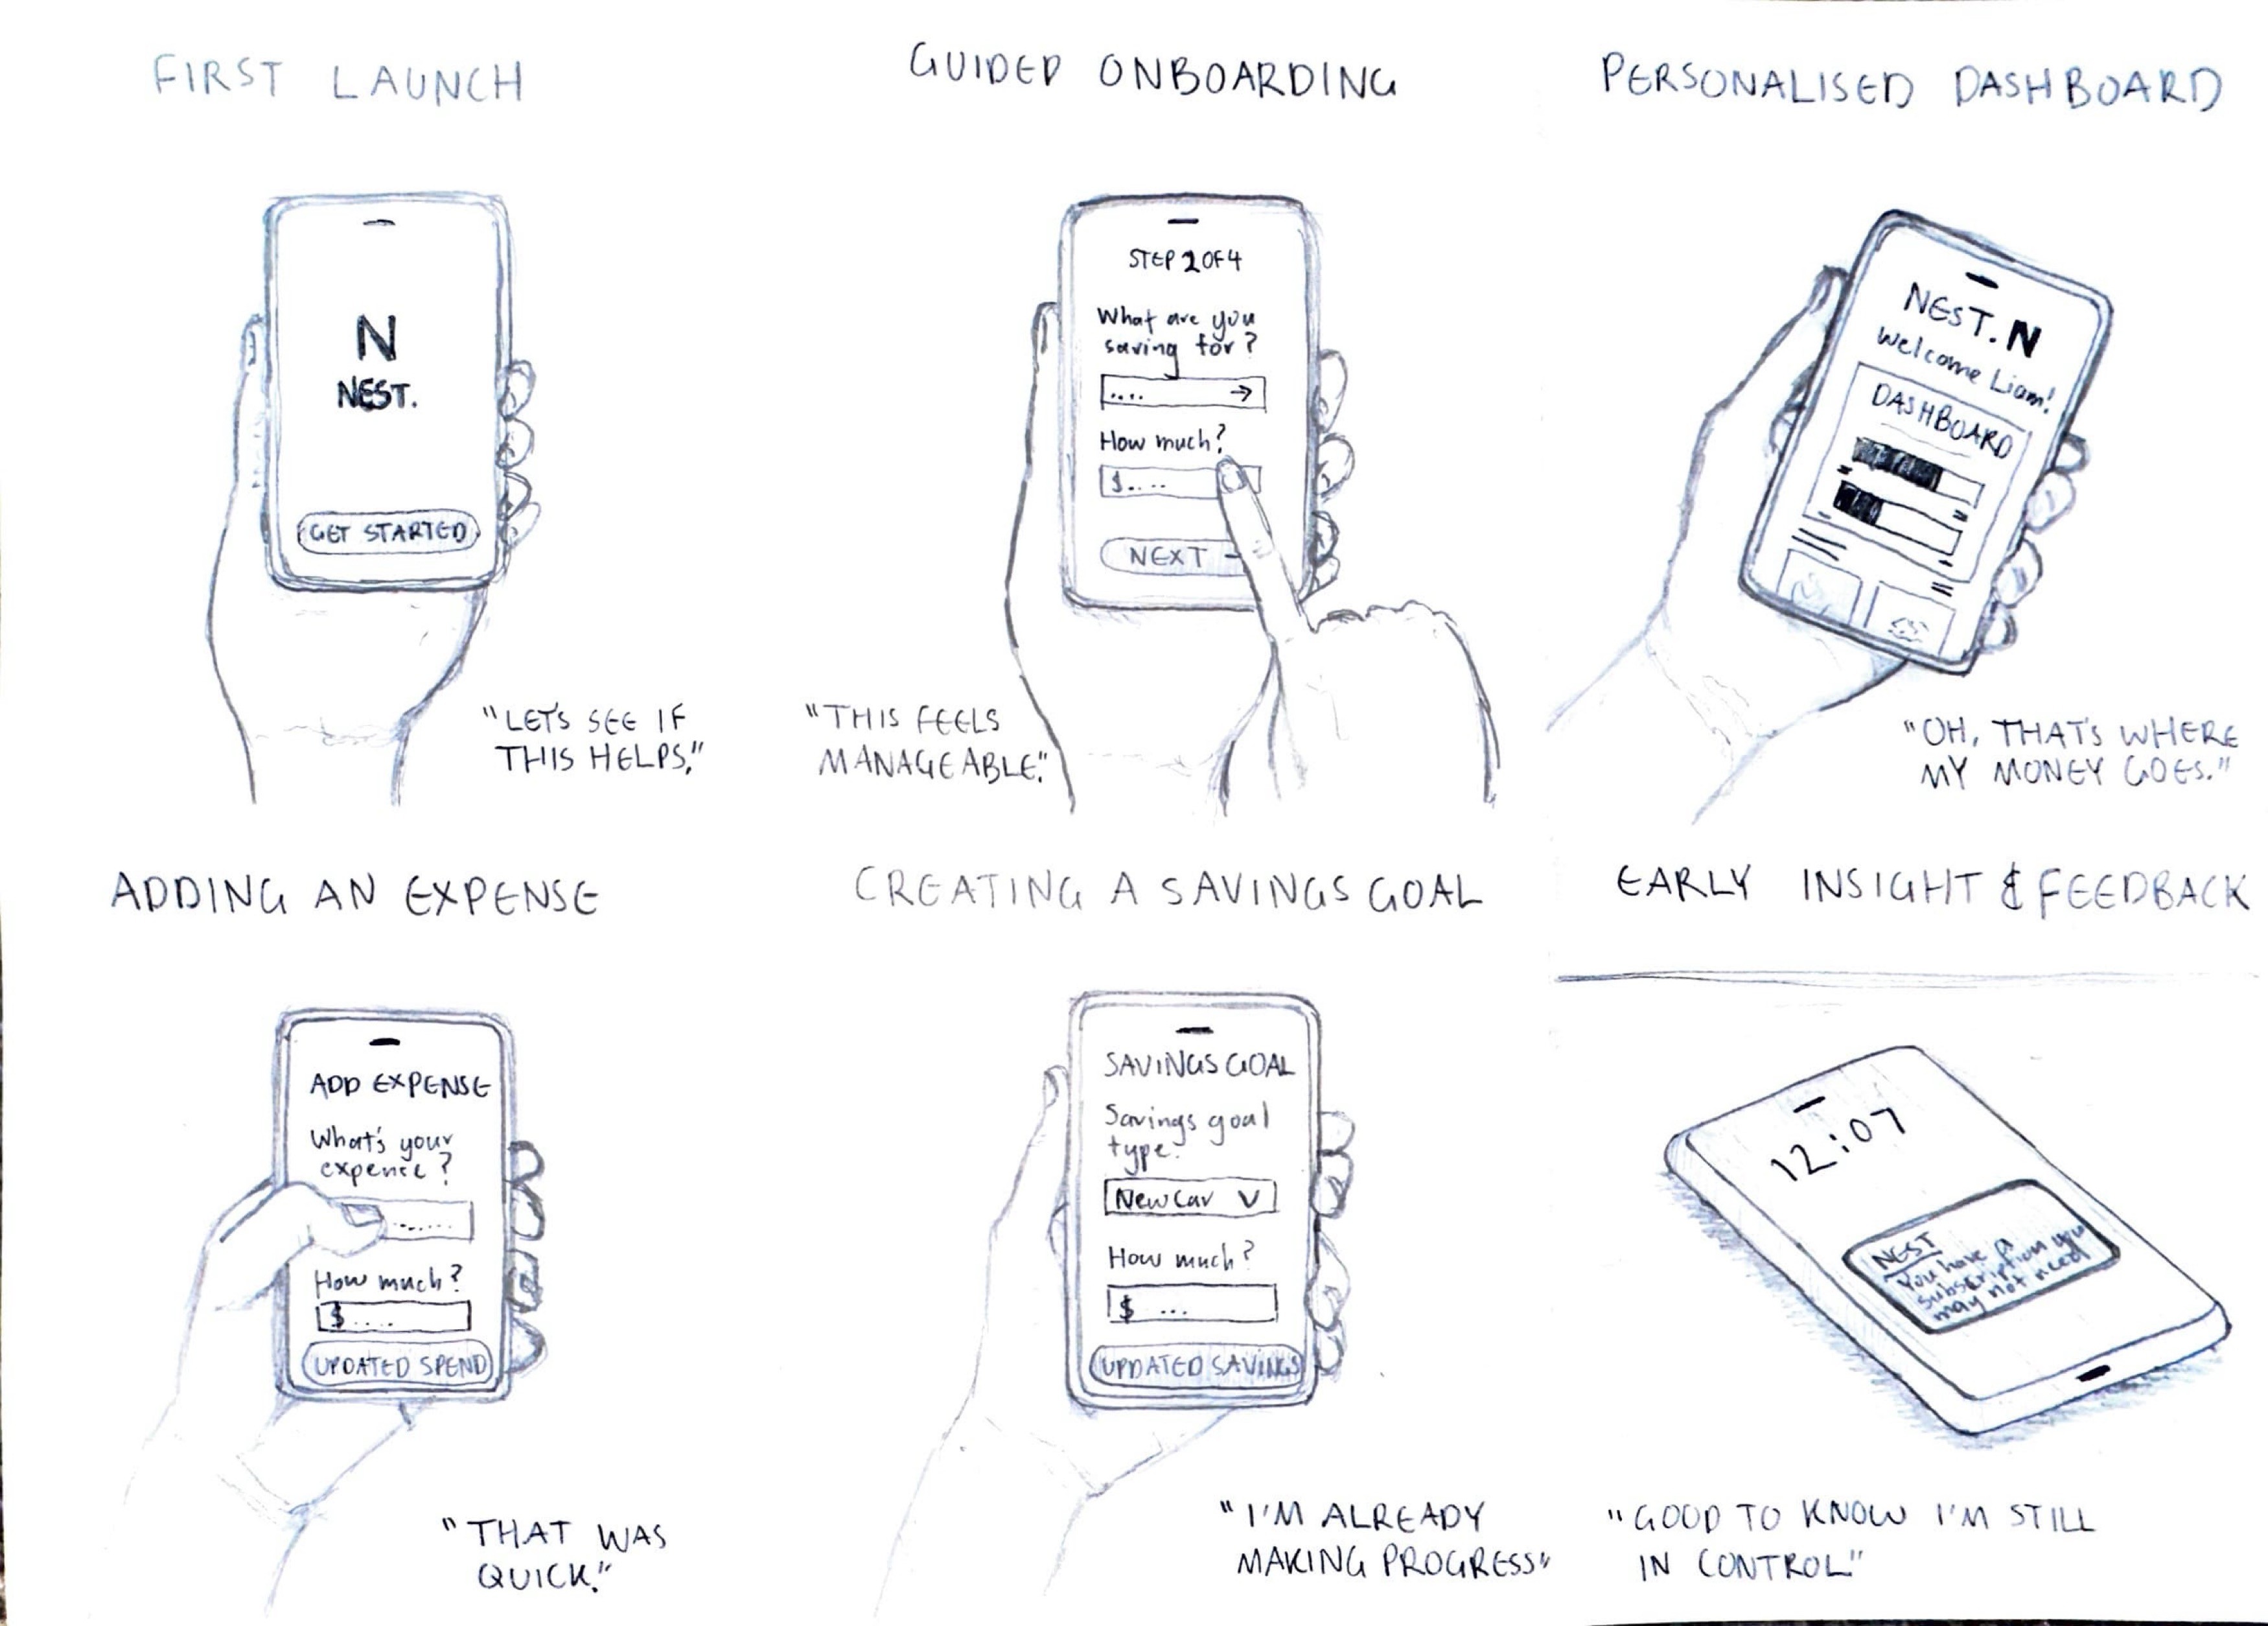 FIRST LAUNCH
N
NEST.
GET STARTED
"LET'S SEE IF
THIS HELPS."
GUIDED ONBOARDING
STEP 2 OF 4
What are you
saving for?
.... →
How much?
$....
NEXT
"THIS FEELS
MANAGEABLE."
PERSONALISED DASHBOARD
NEST. N
Welcome Liam!
DASHBOARD
"OH, THAT'S WHERE
MY MONEY GOES."
ADDING AN EXPENSE
ADD EXPENSE
What's your
expense?
.......
How much?
$....
UPDATED SPEND
"THAT WAS
QUICK."
CREATING A SAVINGS GOAL
SAVINGS GOAL
Savings goal
type?
New Car V
How much?
$ ...
UPDATED SAVINGS
"I'M ALREADY
MAKING PROGRESS"
EARLY INSIGHT & FEEDBACK
12:07
NEST
You have a
subscription you
may not need
"GOOD TO KNOW I'M STILL
IN CONTROL"